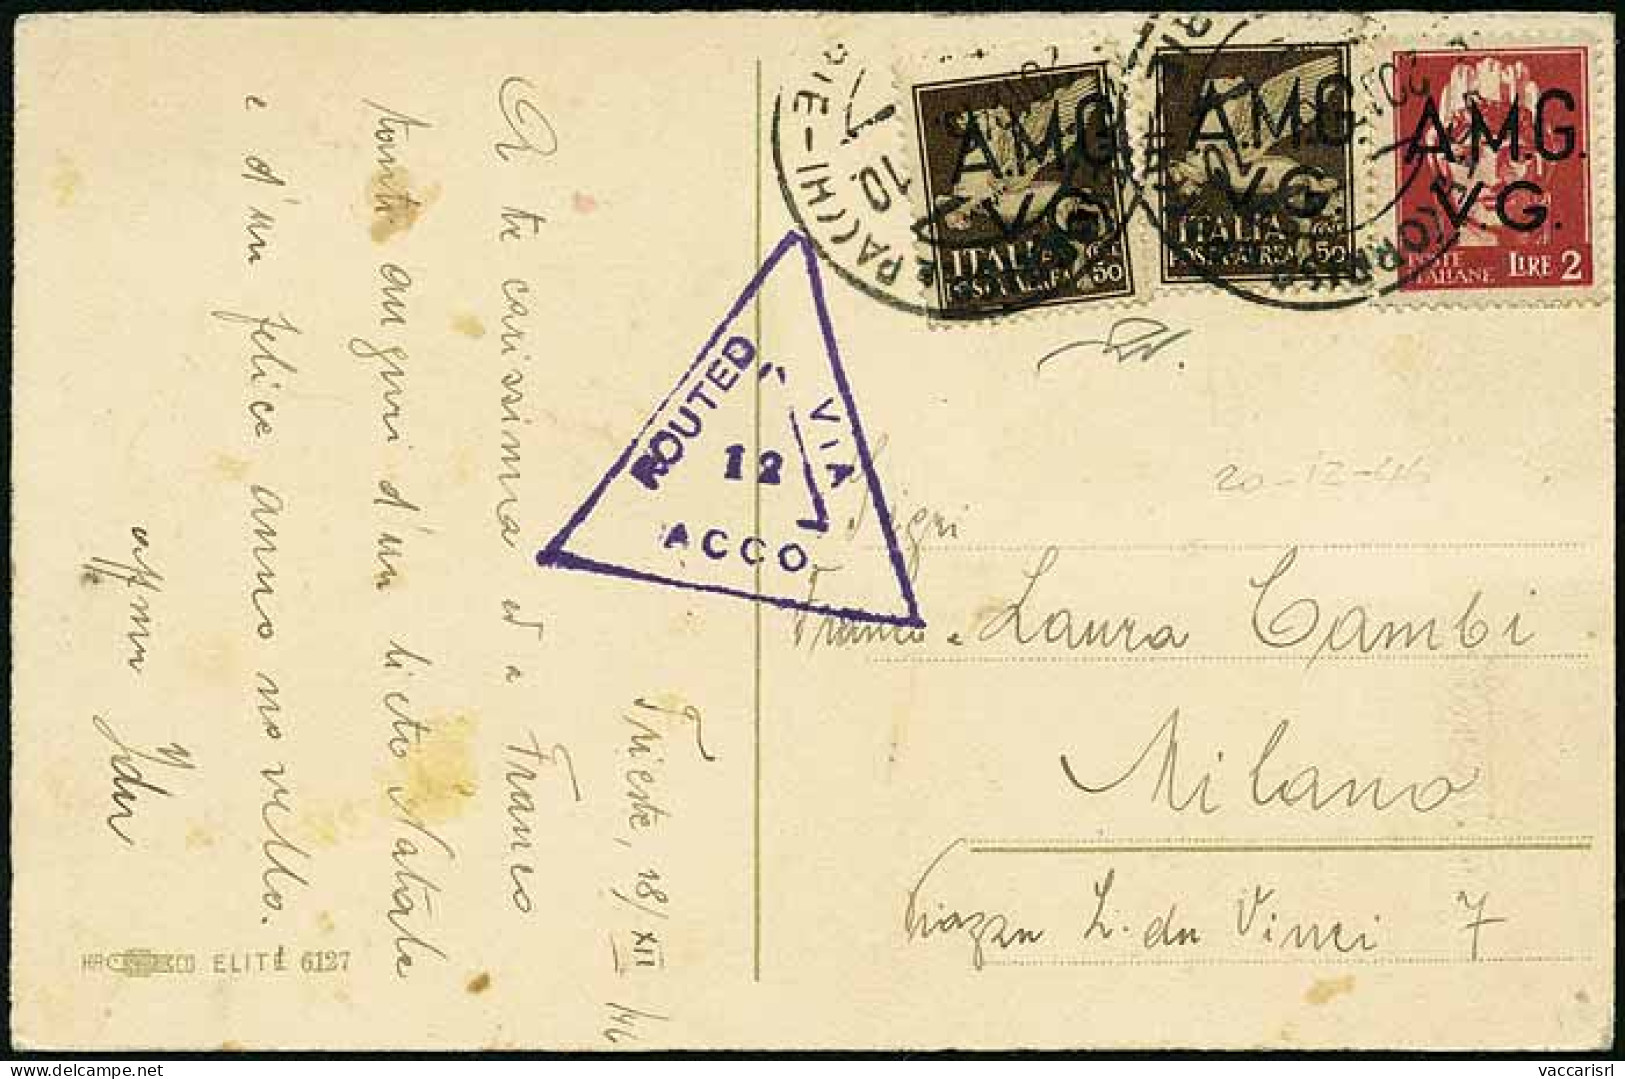 Trieste, 18/XII/46
A te carissima ed a Franco
tanti auguri d'un lieto Natale
e d'un felice anno no vello.
affma
ELITE 6127
A.M.G.
V.G.
ITALIA
POSTA AEREA
50
A.M.G.
V.G.
ITALIA
POSTA AEREA
50
A.M.G.
V.G.
POSTE
ITALIANE
LIRE 2
ROUTED VIA
12
ACCO
20-12-46
Sigri
Franco e Laura Cambi
Milano
Piazza L. da Vinci 7
www.vaccarisrl.it
vaccarisrl